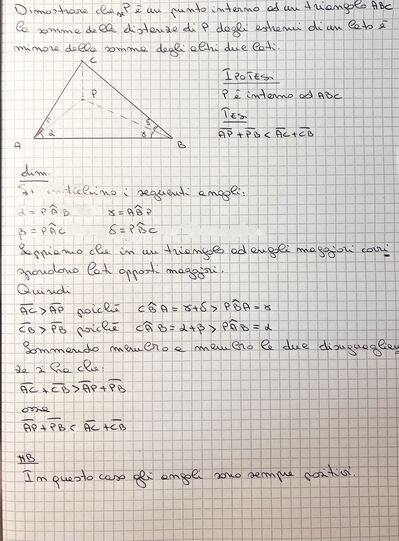 Dimostrare che se P è un punto interno ad un triangolo ABC
la somma delle distanze di P dagli estremi di un lato è
minore della somma degli altri due lati.
C
P
A
B
α
β
γ
δ
IPOTESI
P è interno ad ABC
TESI
AP + PB < AC + CB
dim.
Si indichino i seguenti angoli:
α = PÂB γ = AB̂P
β = PÂC δ = PB̂C
Sappiamo che in un triangolo ad angoli maggiori corri
spondono lati opposti maggiori.
Quindi
AC > AP poiché CB̂A = γ+δ > PB̂A = γ
CB > PB poiché CÂB = α+β > PÂB = α
Sommando membro a membro le due disuguaglian
ze si ha che:
AC + CB > AP + PB
ossia
AP + PB < AC + CB
NB
In questo caso gli angoli sono sempre positivi.